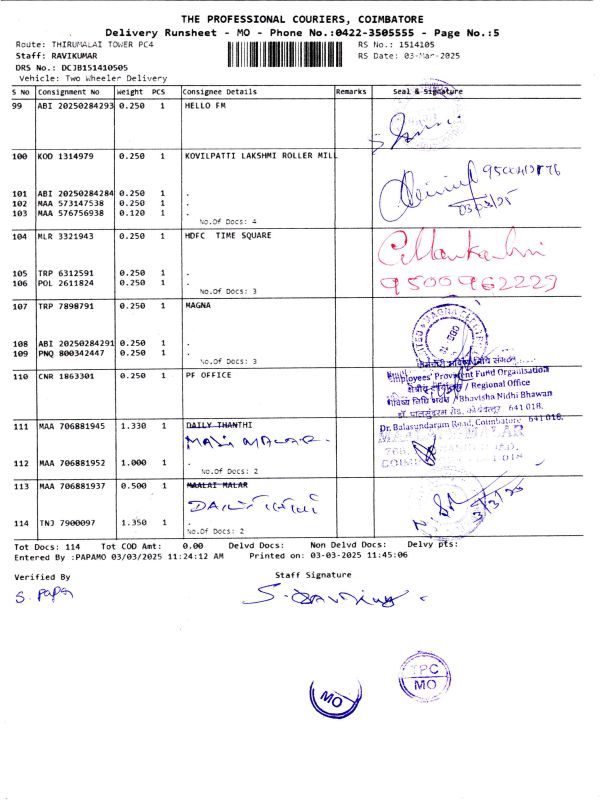 THE PROFESSIONAL COURIERS, COIMBATORE
Delivery Runsheet - MO - Phone No.:0422-3505555 - Page No.:5
Route: THIRUMALAI TOWER PC4
RS No.: 1514105
Staff: RAVIKUMAR
RS Date: 03-Mar-2025
DRS No.: DCJB151410505
Vehicle: Two Wheeler Delivery
S No Consignment No Weight PCS Consignee Details Remarks Seal & Signature
99 ABI 20250284293 0.250 1 HELLO FM
100 KOD 1314979 0.250 1 KOVILPATTI LAKSHMI ROLLER MILL
101 ABI 20250284284 0.250 1 .
102 MAA 573147538 0.250 1 .
103 MAA 576756938 0.120 1 .
No.Of Docs: 4
03/03/25
104 MLR 3321943 0.250 1 HDFC TIME SQUARE
105 TRP 6312591 0.250 1 .
106 POL 2611824 0.250 1 .
No.Of Docs: 3
9500962229
107 TRP 7898791 0.250 1 MAGNA
108 ABI 20250284291 0.250 1 .
109 PNQ 800342447 0.250 1 .
No.Of Docs: 3
110 CNR 1863301 0.250 1 PF OFFICE
Employees' Provident Fund Organisation
/ Regional Office
भविष्य निधि भवन / Bhavisha Nidhi Bhawan
डॉ. बालसुंदरम रोड, कोयंबत्तूर 641 018.
Dr. Balasundaram Road, Coimbatore 641 018.
111 MAA 706881945 1.330 1 DAILY THANTHI
MALAI MALAR
112 MAA 706881952 1.000 1 .
No.Of Docs: 2
113 MAA 706881937 0.500 1 MAALAI MALAR
3/3/25
114 TNJ 7900097 1.350 1 .
No.Of Docs: 2
Tot Docs: 114 Tot COD Amt: 0.00 Delvd Docs: Non Delvd Docs: Delvy pts:
Entered By :PAPAMO 03/03/2025 11:24:12 AM Printed on: 03-03-2025 11:45:06
Verified By
Staff Signature
S. Papa
TPC
MO
MO